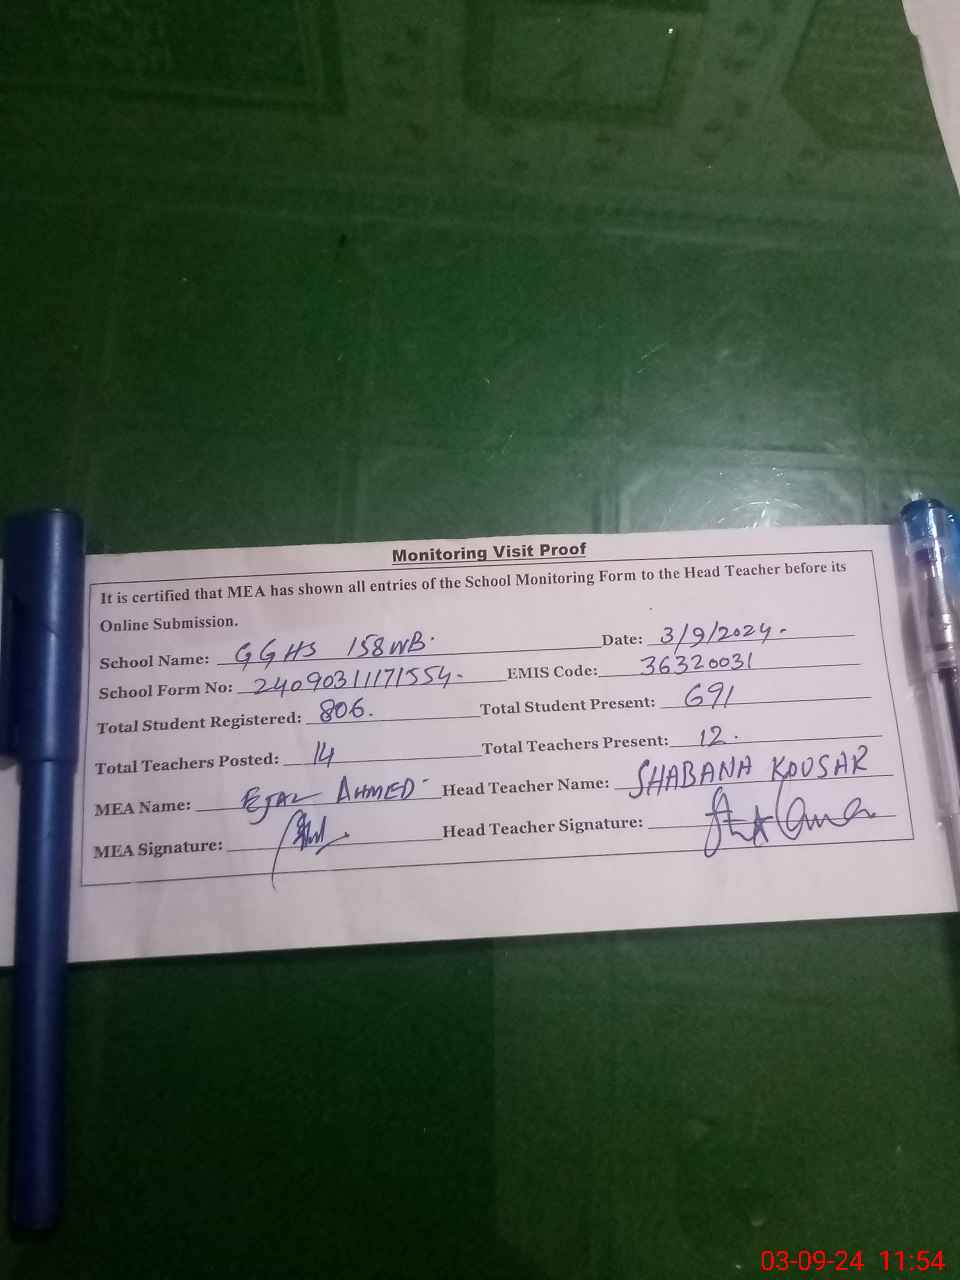 Monitoring Visit Proof
It is certified that MEA has shown all entries of the School Monitoring Form to the Head Teacher before its
Online Submission.
School Name: GGHS 158WB. Date: 3/9/2024.
School Form No: 24090311171554. EMIS Code: 36320031
Total Student Registered: 806. Total Student Present: 691
Total Teachers Posted: 14 Total Teachers Present: 12.
MEA Name: EJAZ AHMED Head Teacher Name: SHABANA KOUSAR
MEA Signature: Head Teacher Signature:
03-09-24 11:54